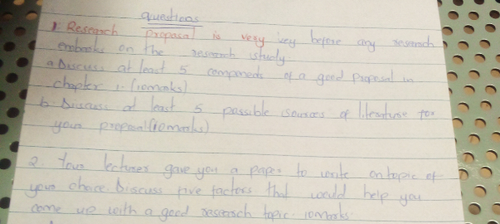 questions
1. Research proposal is very key before any research
embarks on the research study
a. Discuss at least 5 components of a good proposal in
chapter 1. (10marks)
b. Discuss at least 5 possible sources of literature for
your proposal (10marks)
2. Your lecturer gave you a paper to write on topic of
your choice. Discuss five factors that would help you
come up with a good research topic. 10marks